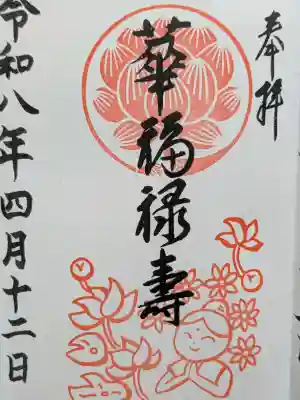 奉拝
華福禄寿
令和八年四月十二日